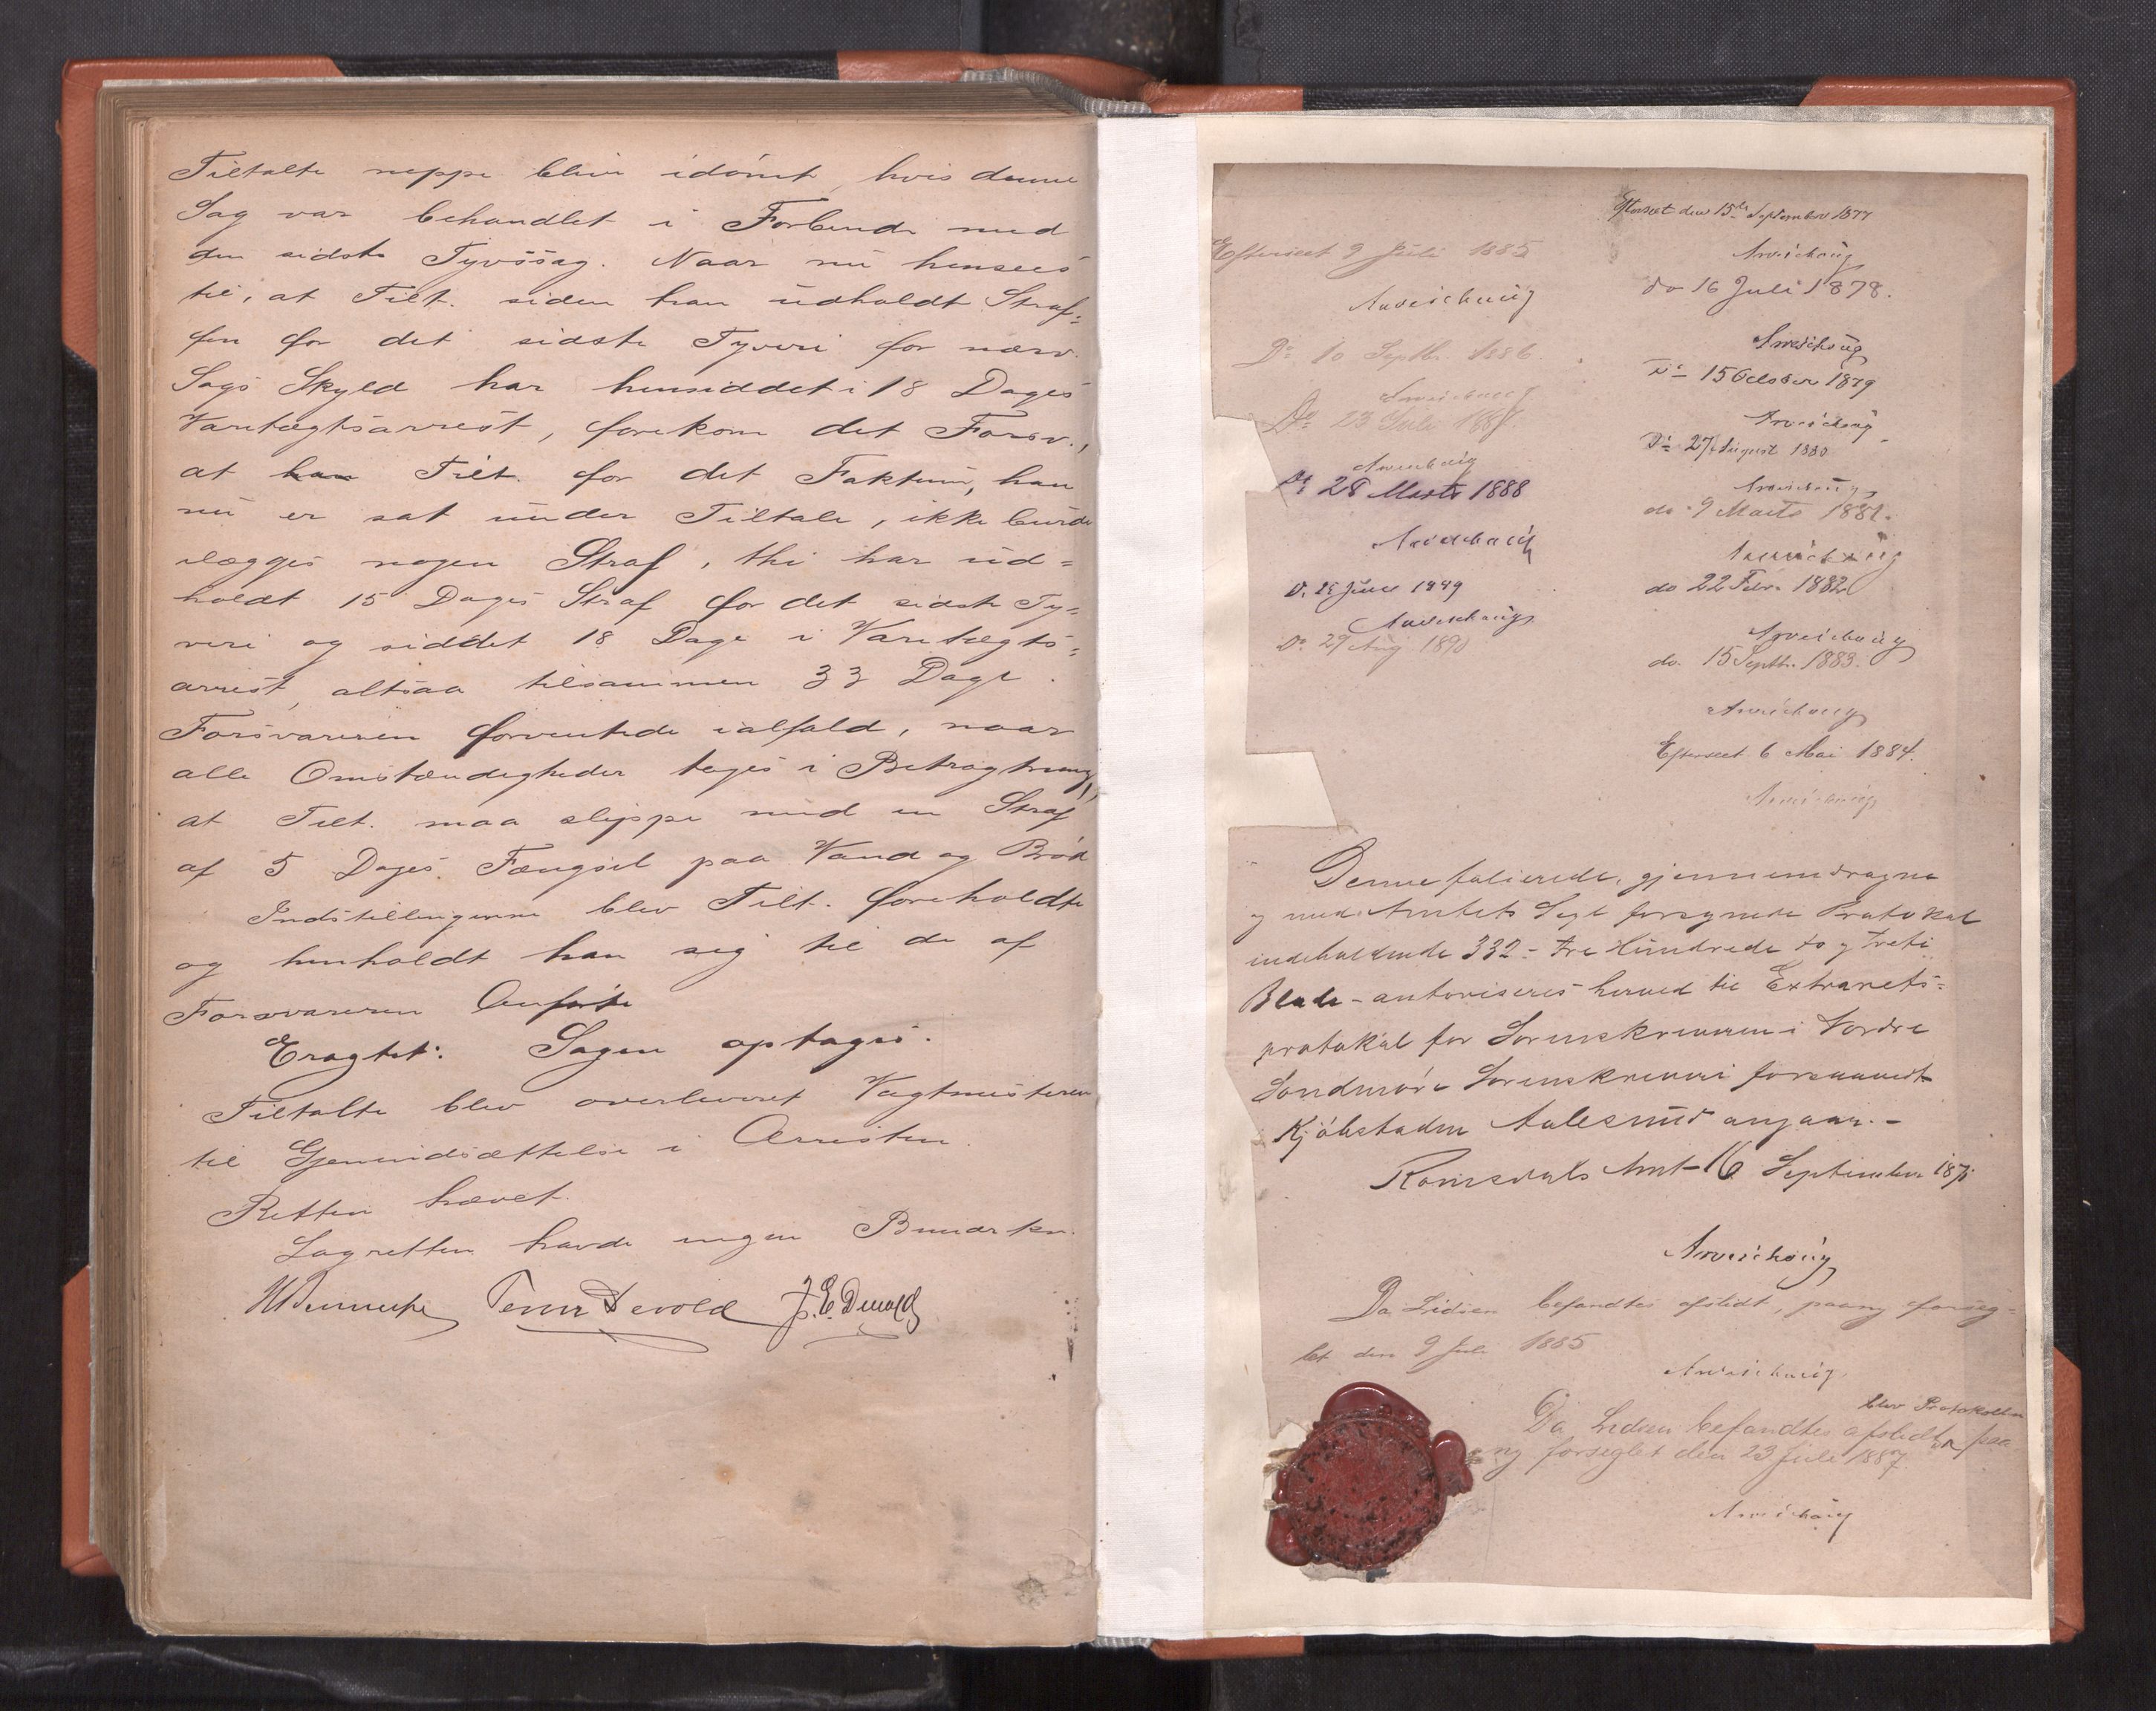 Tiltalte neppe bleve idömt, hvis denne
Sag var behandlet i Forbinde med
den sidste Tyvssag. Naar nu hensees
til, at Tilt. siden han udholdt Straf=
fen for det sidste Tyveri for nærv.
Sags Skyld har hensiddet i 18 Dages
Varetægtsarrest, forekom det Forsv.,
at han Tilt. for det Faktum, han
nu er sat under Tiltale, ikke burde
ilægges nogen Straf, thi har ud=
holdt 15 Dages Straf for det sidste Ty=
veri og siddet 18 Dage i Varetægts=
arrest, altsaa tilsammen 33 Dage.
Forsvareren forventede ialfald, naar
alle Omstændigheder tages i Betragtning,
at Tilt. maa slippe med en Straf
af 5 Dages Fængsel paa Vand og Bröd
Indstillingerne blev Tilt. foreholdte
og henholdt han sig til de af
Forsvareren Anförte
Eragtet: Sagen optages.
Tiltalte blev overleveret Vagtmesteren
til Gjenindsættelse i Arresten.
Retten hævet.
Lagretten havde ingen Bemærkn.
Devold J. E. Devold
Efterseet den 15de September 1877
do 16 Juli 1878.
Do 15 October 1879
Do 27 August 1880
do 9 Marts 1881.
do 22 Febr. 1882
do. 15 Septbr. 1883.
Efterseet 6 Mai 1884.
Efterseet 9 Juli 1885
Do 10 Septbr. 1886.
Do 23 Juli 1887.
Do 28 Marts 1888
Do 25 Juni 1889
Do 29 Aug 1890
Denne folierede, gjennemdragne
og med Amtets Segl forsynede Protokol
indeholdende 332 - tre Hundrede to og treti
Blade - autoriseres herved til Extrarets=
protokol for Sorenskriveren i Nordre
Söndmöre Sorenskriveri forsaavidt
Kjöbstaden Aalesund angaar. -
Romsdals Amt 16 September 187
Da Lidsen befandtes afslidt, paany forseg=
let den 9 Juli 1885
Da Lidsen befandtes afslidt blev Protokollen paa
ny forseglet den 23 Juli 1887.